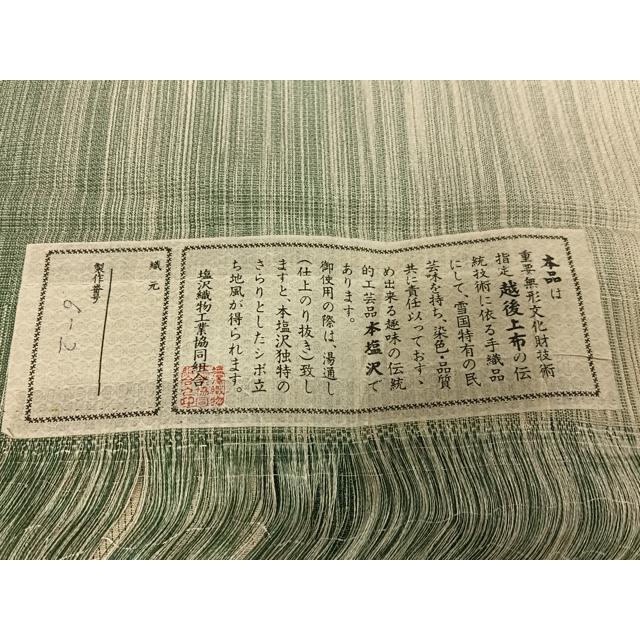 本品は
重要無形文化財技術
指定 越後上布の伝
統技術に依る手織品
にして、雪国特有の民
芸味を持ち、染色・品質
共に責任以っておすゝ
め出来る趣味の伝統
的工芸品本塩沢で
あります。
御使用の際は、湯通し
(仕上のり抜き)致し
ますと、本塩沢独特の
さらりとしたシボ立
ち地風が得られます。
塩沢織物工業協同組合
塩澤織物
協同
組合之印
織元
製作番号
6-2